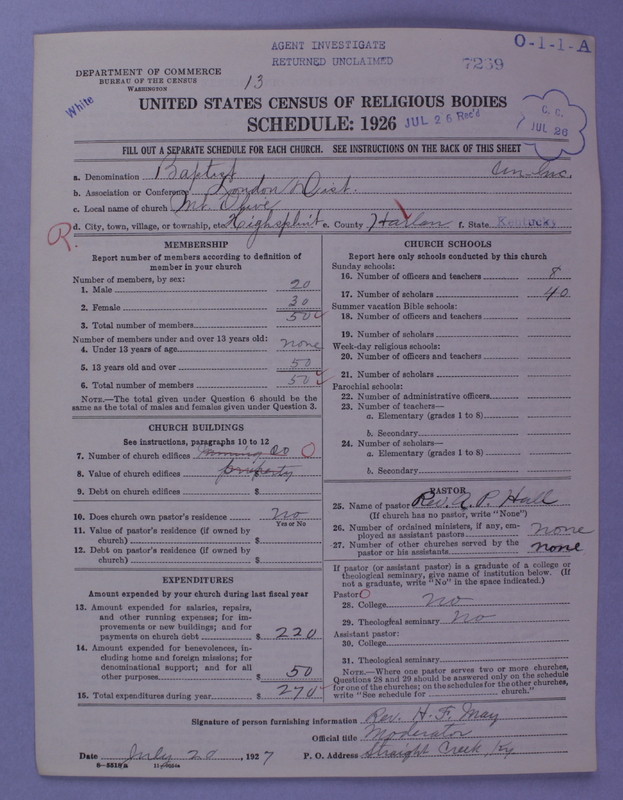 AGENT INVESTIGATE
RETURNED UNCLAIMED
O-1-1-A
7269
DEPARTMENT OF COMMERCE
BUREAU OF THE CENSUS
WASHINGTON
13
White
UNITED STATES CENSUS OF RELIGIOUS BODIES
SCHEDULE: 1926
JUL 26 Rec'd
C. C.
JUL 26
FILL OUT A SEPARATE SCHEDULE FOR EACH CHURCH. SEE INSTRUCTIONS ON THE BACK OF THIS SHEET
a. Denomination Baptist
b. Association or Conference London Dist.
c. Local name of church Mt. Olive
d. City, town, village, or township, etc. Highsplint e. County Harlan f. State Kentucky
R.
MEMBERSHIP
Report number of members according to definition of member in your church
Number of members, by sex:
1. Male 20
2. Female 30
3. Total number of members 50
Number of members under and over 13 years old:
4. Under 13 years of age none
5. 13 years old and over 50
6. Total number of members 50
NOTE.—The total given under Question 6 should be the same as the total of males and females given under Question 3.
CHURCH BUILDINGS
See instructions, paragraphs 10 to 12
7. Number of church edifices Mining Co O
8. Value of church edifices property
9. Debt on church edifices $
10. Does church own pastor's residence No
Yes or No
11. Value of pastor's residence (if owned by church) $
12. Debt on pastor's residence (if owned by church) $
EXPENDITURES
Amount expended by your church during last fiscal year
13. Amount expended for salaries, repairs, and other running expenses; for improvements or new building; and for payments on church debt $ 220
14. Amount expended for benevolences, including home and foreign missions; for denominational support; and for all other purposes $ 50
15. Total expenditures during year $ 270
CHURCH SCHOOLS
Report here only schools conducted by this church
Sunday schools:
16. Number of officers and teachers 8
17. Number of scholars 40
Summer vacation Bible schools:
18. Number of officers and teachers
19. Number of scholars
Week-day religious schools:
20. Number of officers and teachers
21. Number of scholars
Parochial schools:
22. Number of administrative officers
23. Number of teachers—
a. Elementary (grades 1 to 8)
b. Secondary
24. Number of scholars—
a. Elementary (grades 1 to 8)
b. Secondary
PASTOR
25. Name of pastor Rev. A. P. Hall
(If church has no pastor, write "None")
26. Number of ordained ministers, if any, employed as assistant pastors none
27. Number of other churches served by the pastor or his assistants none
If pastor (or assistant pastor) is a graduate of a college or theological seminary, give name of institution below. (If not a graduate, write "No" in the space indicated.)
Pastor: O
28. College No
29. Theological seminary No
Assistant pastor:
30. College
31. Theological seminary
NOTE.—Where one pastor serves two or more churches, Questions 28 and 29 should be answered only on the schedule for one of the churches; on the schedules for the other churches, write "See schedule for church."
Signature of person furnishing information Rev. H. F. May
Official title Moderator
Date July 20, 1927 P. O. Address Straight Creek, Ky